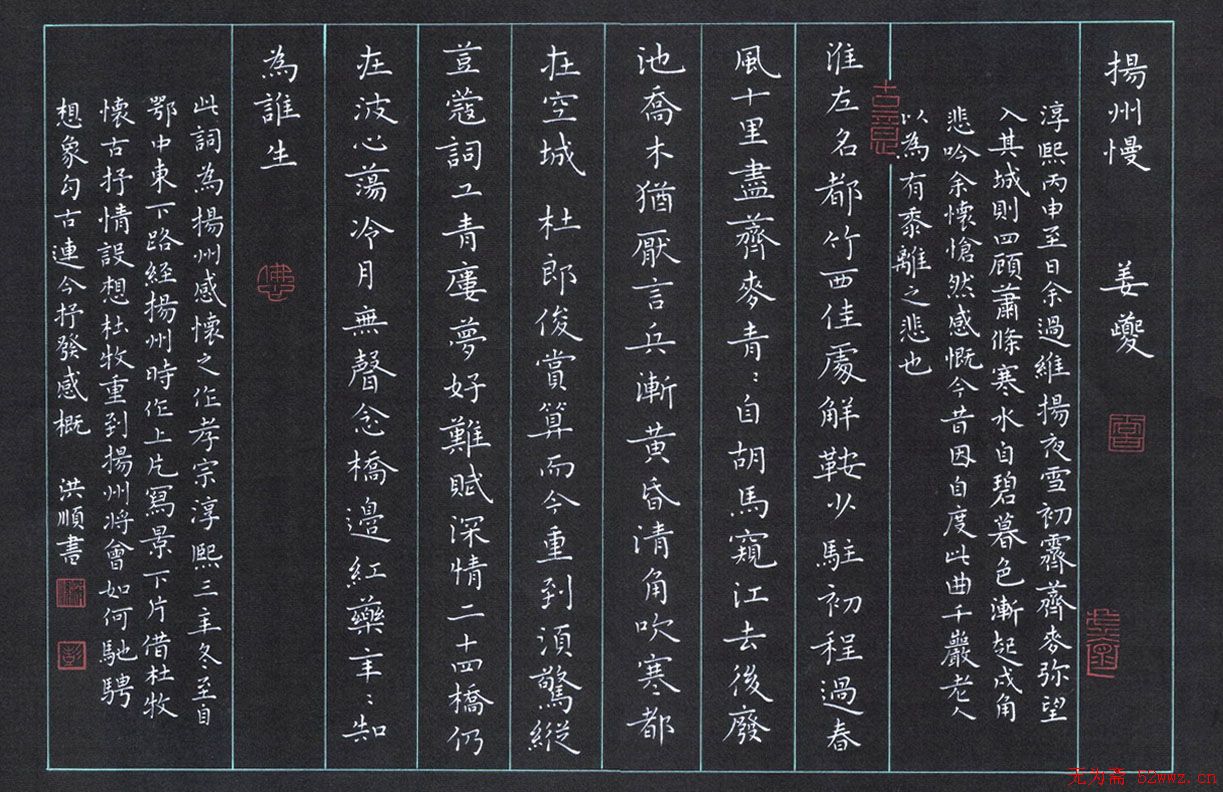 揚州慢 姜夔
淳熙丙申至日余過維揚夜雪初霽薺麥弥望
入其城則四顧蕭條寒水自碧暮色漸起戍角
悲吟余懷愴然感慨今昔因自度此曲千巖老人
以為有黍離之悲也
淮左名都竹西佳處解鞍少駐初程過春
風十里盡薺麥青〻自胡馬窺江去後廢
池喬木猶厭言兵漸黄昏清角吹寒都
在空城 杜郎俊賞算而今重到須驚縱
荳蔻詞工青廔夢好難賦深情二十四橋仍
在波心蕩冷月無聲念橋邊紅藥年〻知
為誰生
此詞為揚州感懷之作孝宗淳熙三年冬至自
鄂申東下路経揚州時作上片寫景下片借杜牧
懷古抒情設想杜牧重到揚州将會如何馳騁
想象勾古連今抒發感概 洪順書
彭
无为斋 52wwz.cn